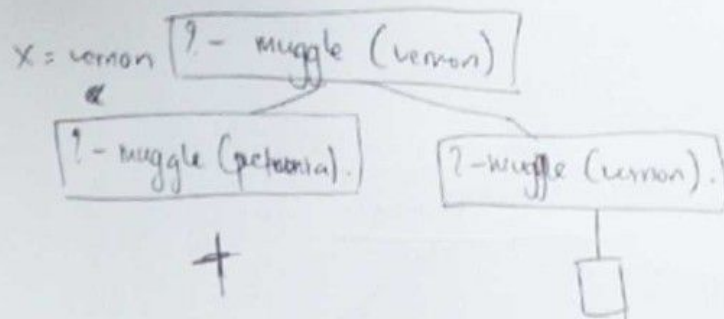 X = vernon ?- muggle (vernon)
?- muggle (petounia).
?- muggle (vernon).